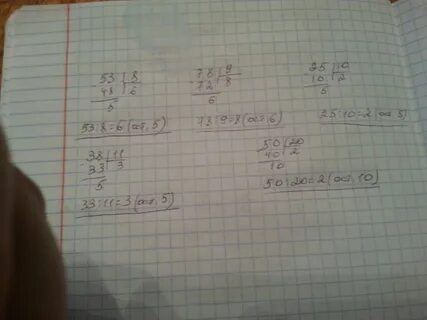 53 | 8
48 | 6
5
53:8=6 (ост, 5)
78 | 9
72 | 8
6
78:9=8 (ост, 6)
25 | 10
10 | 2
5
25:10=2 (ост 5)
38 | 11
33 | 3
5
33:11=3 (ост, 5)
50 | 20
40 | 2
10
50:20=2 (ост, 10)